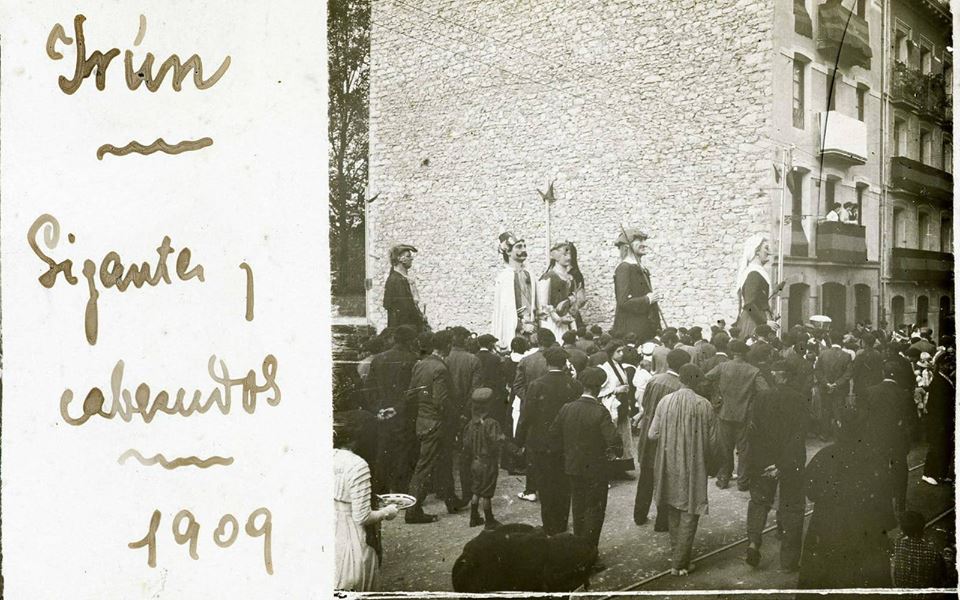 Irún
Gigantes y
cabezudos
1909